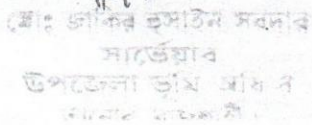 মোঃ জাকির হুসাইন সরদার
সার্ভেয়ার
উপজেলা ভূমি অফিস